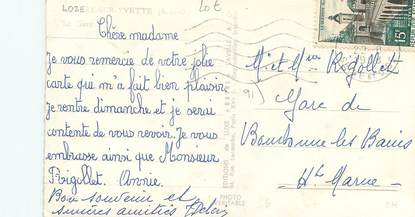 LOZERE-SUR-YVETTE
20 €
Chère madame
Je vous remercie de votre jolie
carte qui m'a fait bien plaisir
je rentre dimanche et je serai
contente de vous revoir. Je vous
embrasse ainsi que Monsieur
Rigollet. Annie.
Bon souvenir et
sincères amitiés
M et Mme Rigollet
91
Gare de
Bourbonne les Bains
Hte Marne
15F
PHOTO
VERITABLE